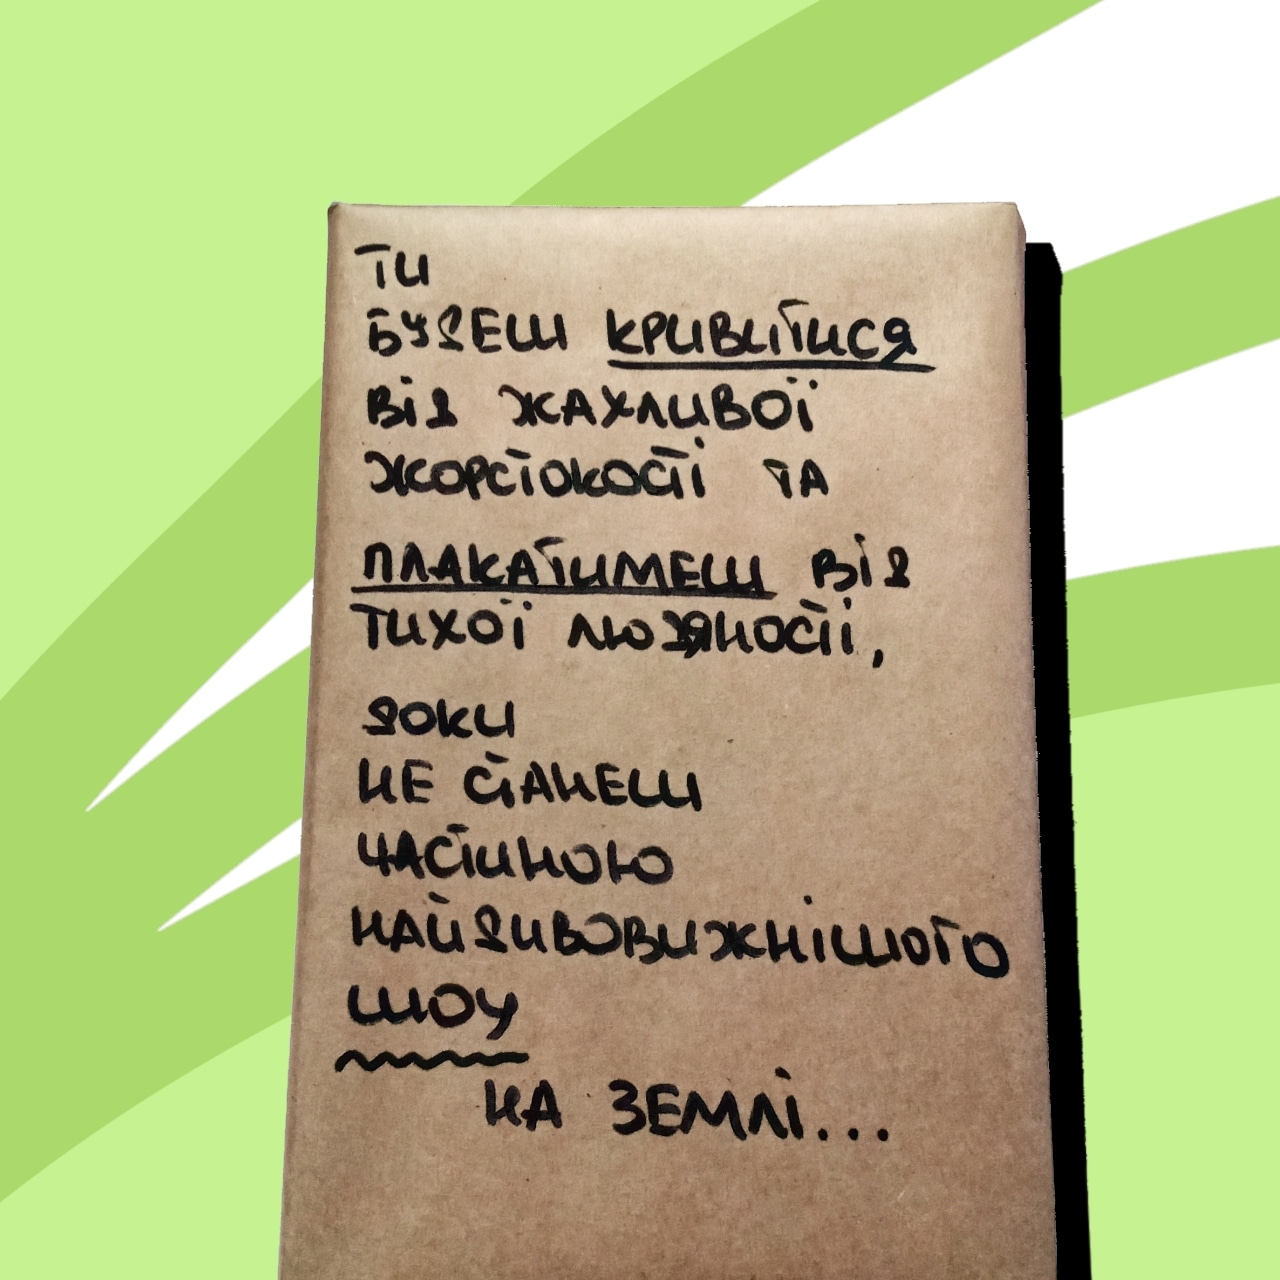 ТИ
БУДЕШ КРИВИТИСЯ
ВІД ЖАХЛИВОЇ
ЖОРСТОКОСТІ ТА
ПЛАКАТИМЕШ ВІД
ТИХОЇ ЛЮДЯНОСТІ,
ДОКИ
НЕ СТАНЕШ
ЧАСТИНОЮ
НАЙДИВОВИЖНІШОГО
ШОУ
НА ЗЕМЛІ...